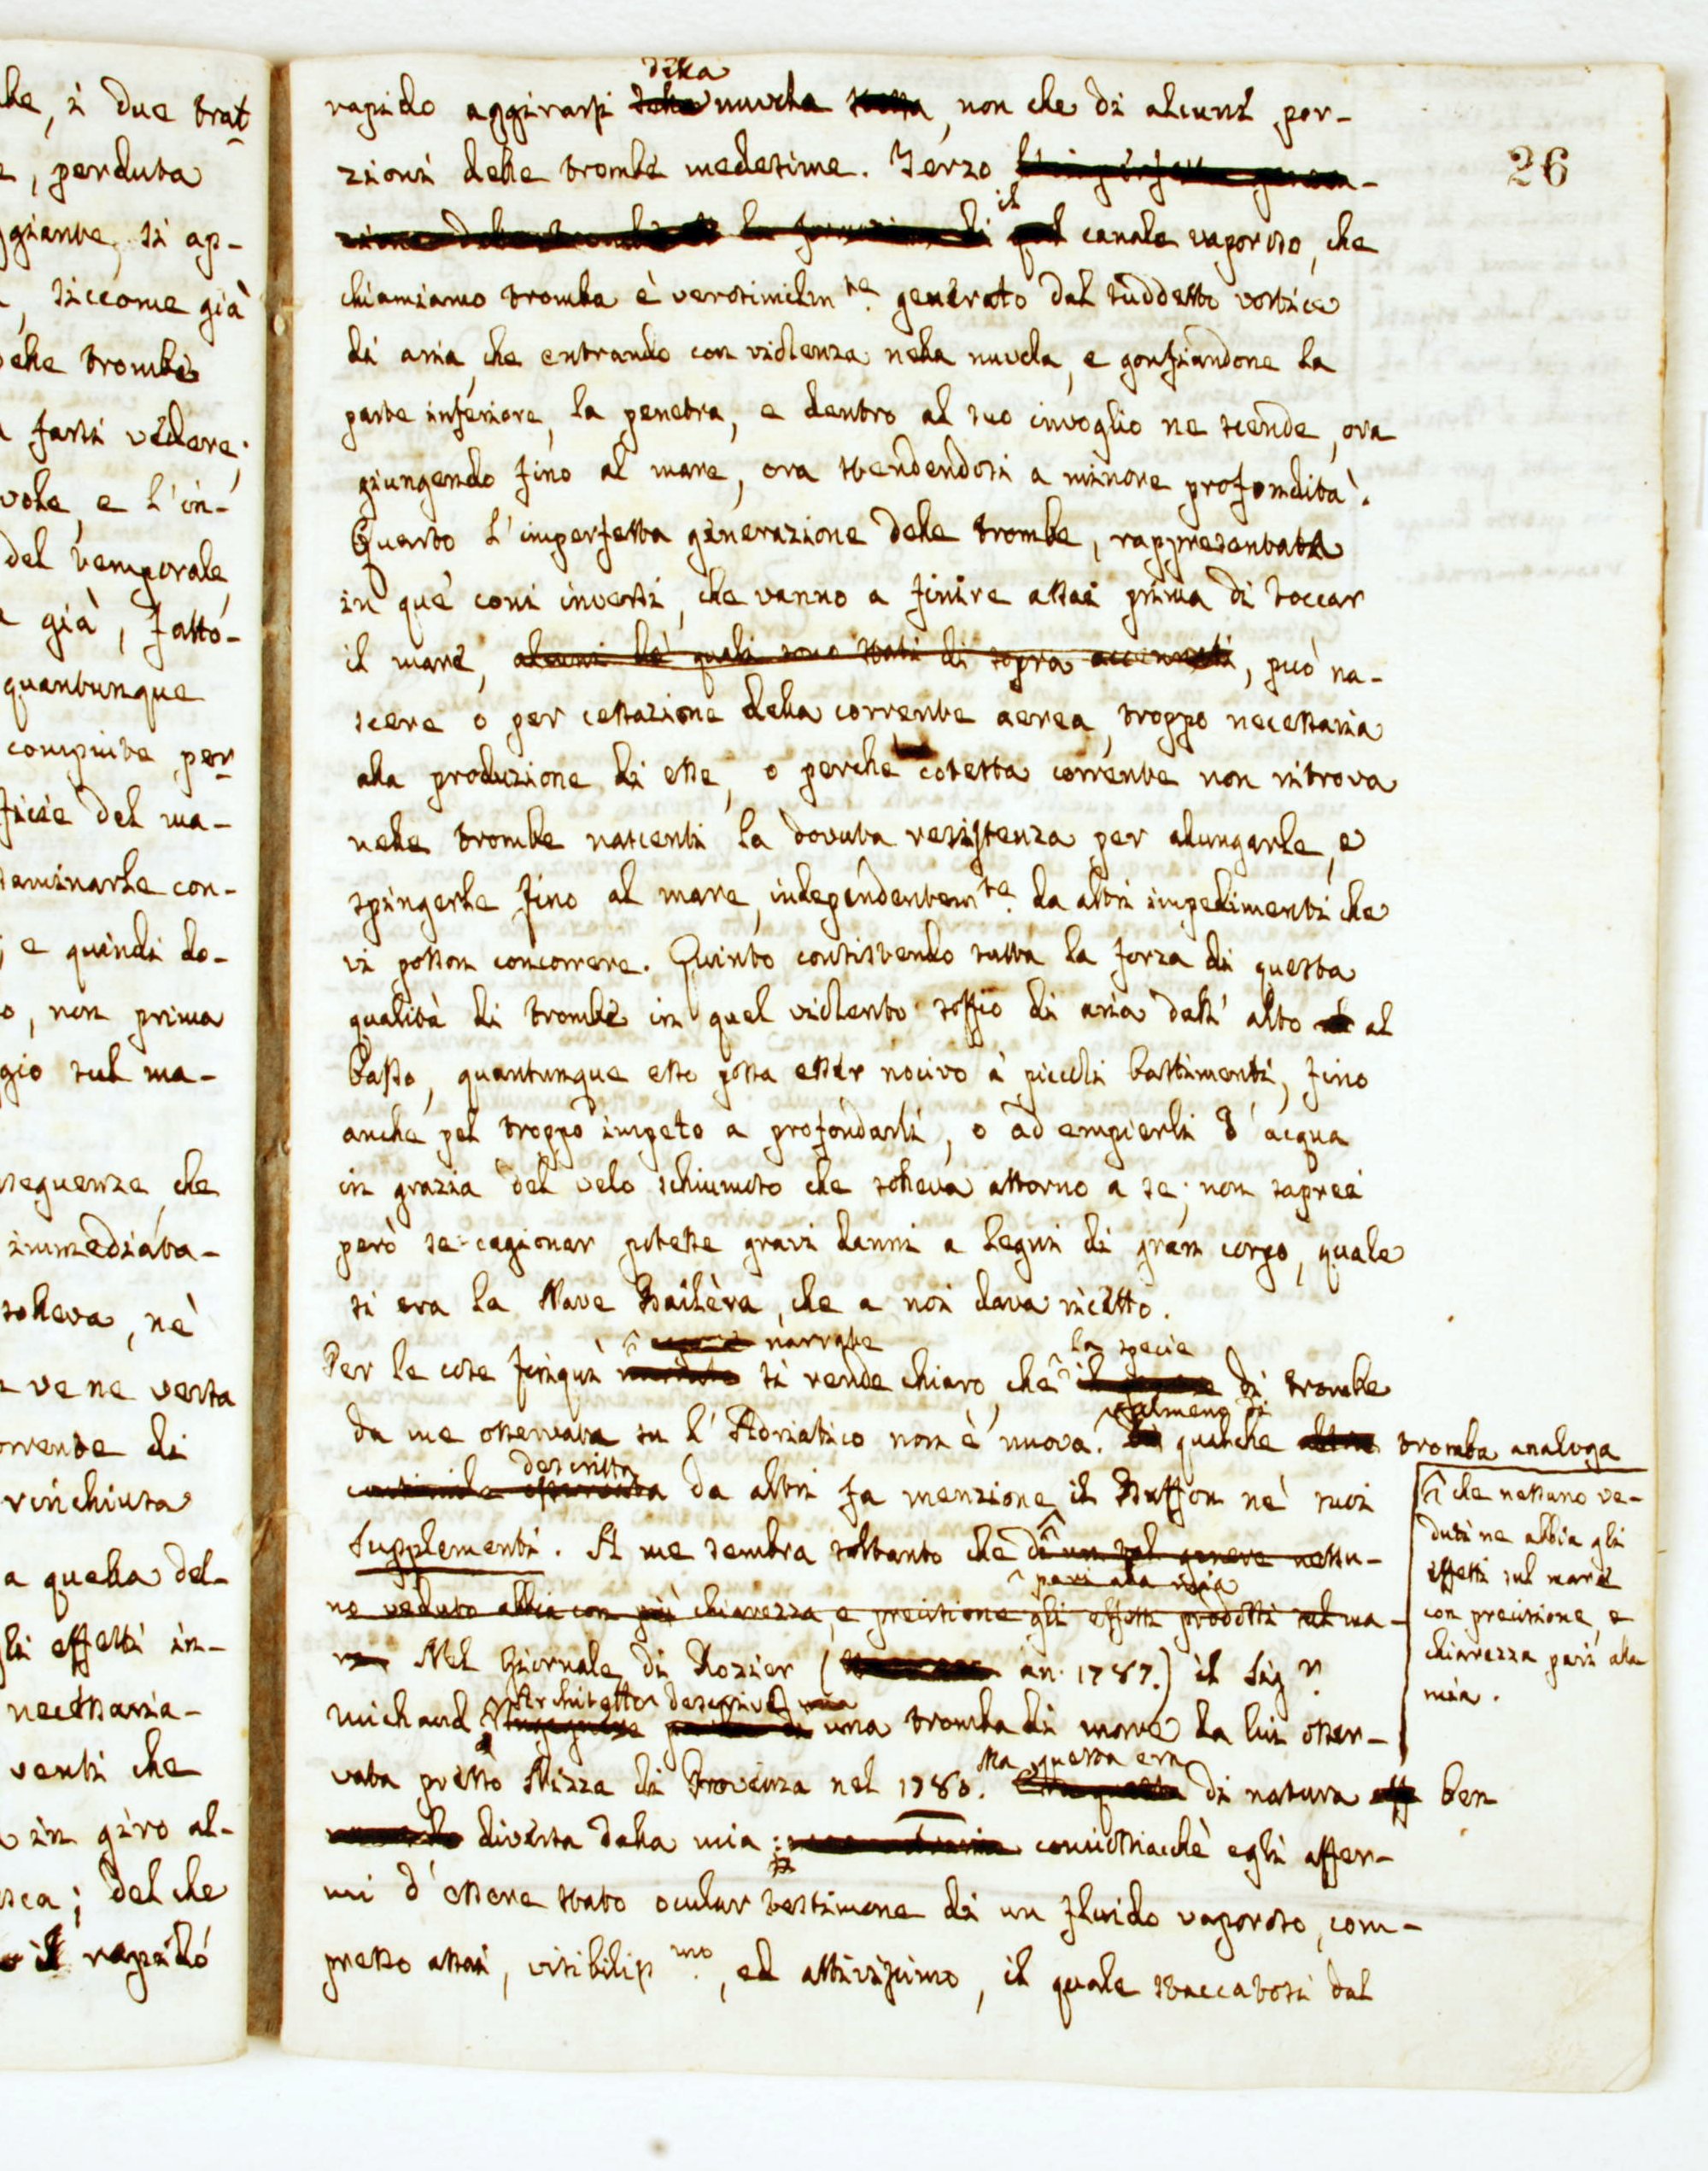 he, i due trat
, perduta
ggiante, si ap-
, siccome già
elle trombe
farsi vedere;
vole, e l'in-
del temporale
già, fatto-
quantunque
compiute per
ficie del ma-
saminarle con-
; e quindi do-
o, non prima
gio sul ma-
seguenza, che
immediata-
solleva, nè
ve ne resta
orrente di
rinchiusa
a quella del-
li effetti in-
necessaria-
venti che
in giro al-
sca; del che
il rapido
26
della
rapido aggirarsi nuvola, non che di alcune por-
zioni delle trombe medesime. Terzo
il
canale vaporoso, che
chiamiamo tromba è verosimilm.te generato dal suddetto vortice
di aria, che entrando con violenza nella nuvola, e gonfiandone la
parte inferiore, la penetra, e dentro al suo invoglio ne scende, ora
giungendo fino al mare, ora stendendosi a minore profondità.
Quarto l'imperfetta generazione delle trombe, rappresentata
in que' coni inversi, che vanno a finire assai prima di toccar
il mare, alcuni de' quali sono stati di sopra accennati, può na-
scere o per cessazione della corrente aerea, troppo necessaria
alla produzione di esse, o perchè cotesta corrente non ritrova
nelle trombe nascenti la dovuta resistenza per alungarle, e
spingerle fino al mare, independentem.te da altri impedimenti che
vi posson concorrere. Quinto consistendo tutta la forza di questa
qualità di trombe in quel violento soffio di aria dall' alto al
basso, quantunque esso possa esser nocivo a' piccoli bastimenti, fino
anche pel troppo impeto a profondarli, o ad empierli d'acqua
in grazia del velo schiumoso che solleva attorno a se; non saprei
però se cagionar potesse gravi danni a legni di gran corpo, quale
si era la Nave Bailèra, che a noi dava ricetto.
narrate la specie
Per le cose finquì si rende chiaro, che di trombe
almeno di
da me osservata su l'Adriatico non è nuova. qualche tromba analoga
descritta
da altri fa menzione il Buffon ne' suoi
Supplementi. A me sembra soltanto che di un tal genere nessu-
pari alla mia
no veduto abbia con più chiarezza, e precisione gli effetti prodotti sul ma-
re Nel Giornale di Rozier ( an. 1787.) il Sig.r
Architetto descrive
michaud Ingegnere una tromba di mare da lui osser-
Ma questa era
vata presso Nizza di Provenza nel 1780. di natura ben
diversa dalla mia: conciossiacchè egli affer-
mi d'essere stato ocular testimone di un fluido vaporoso, com-
presso assai, visibiliss.mo, ed attivissimo, il quale staccatosi dal
che nessuno ve-
duti ne abbia gli
effetti sul mare
con precisione, e
chiarezza pari alla
mia.